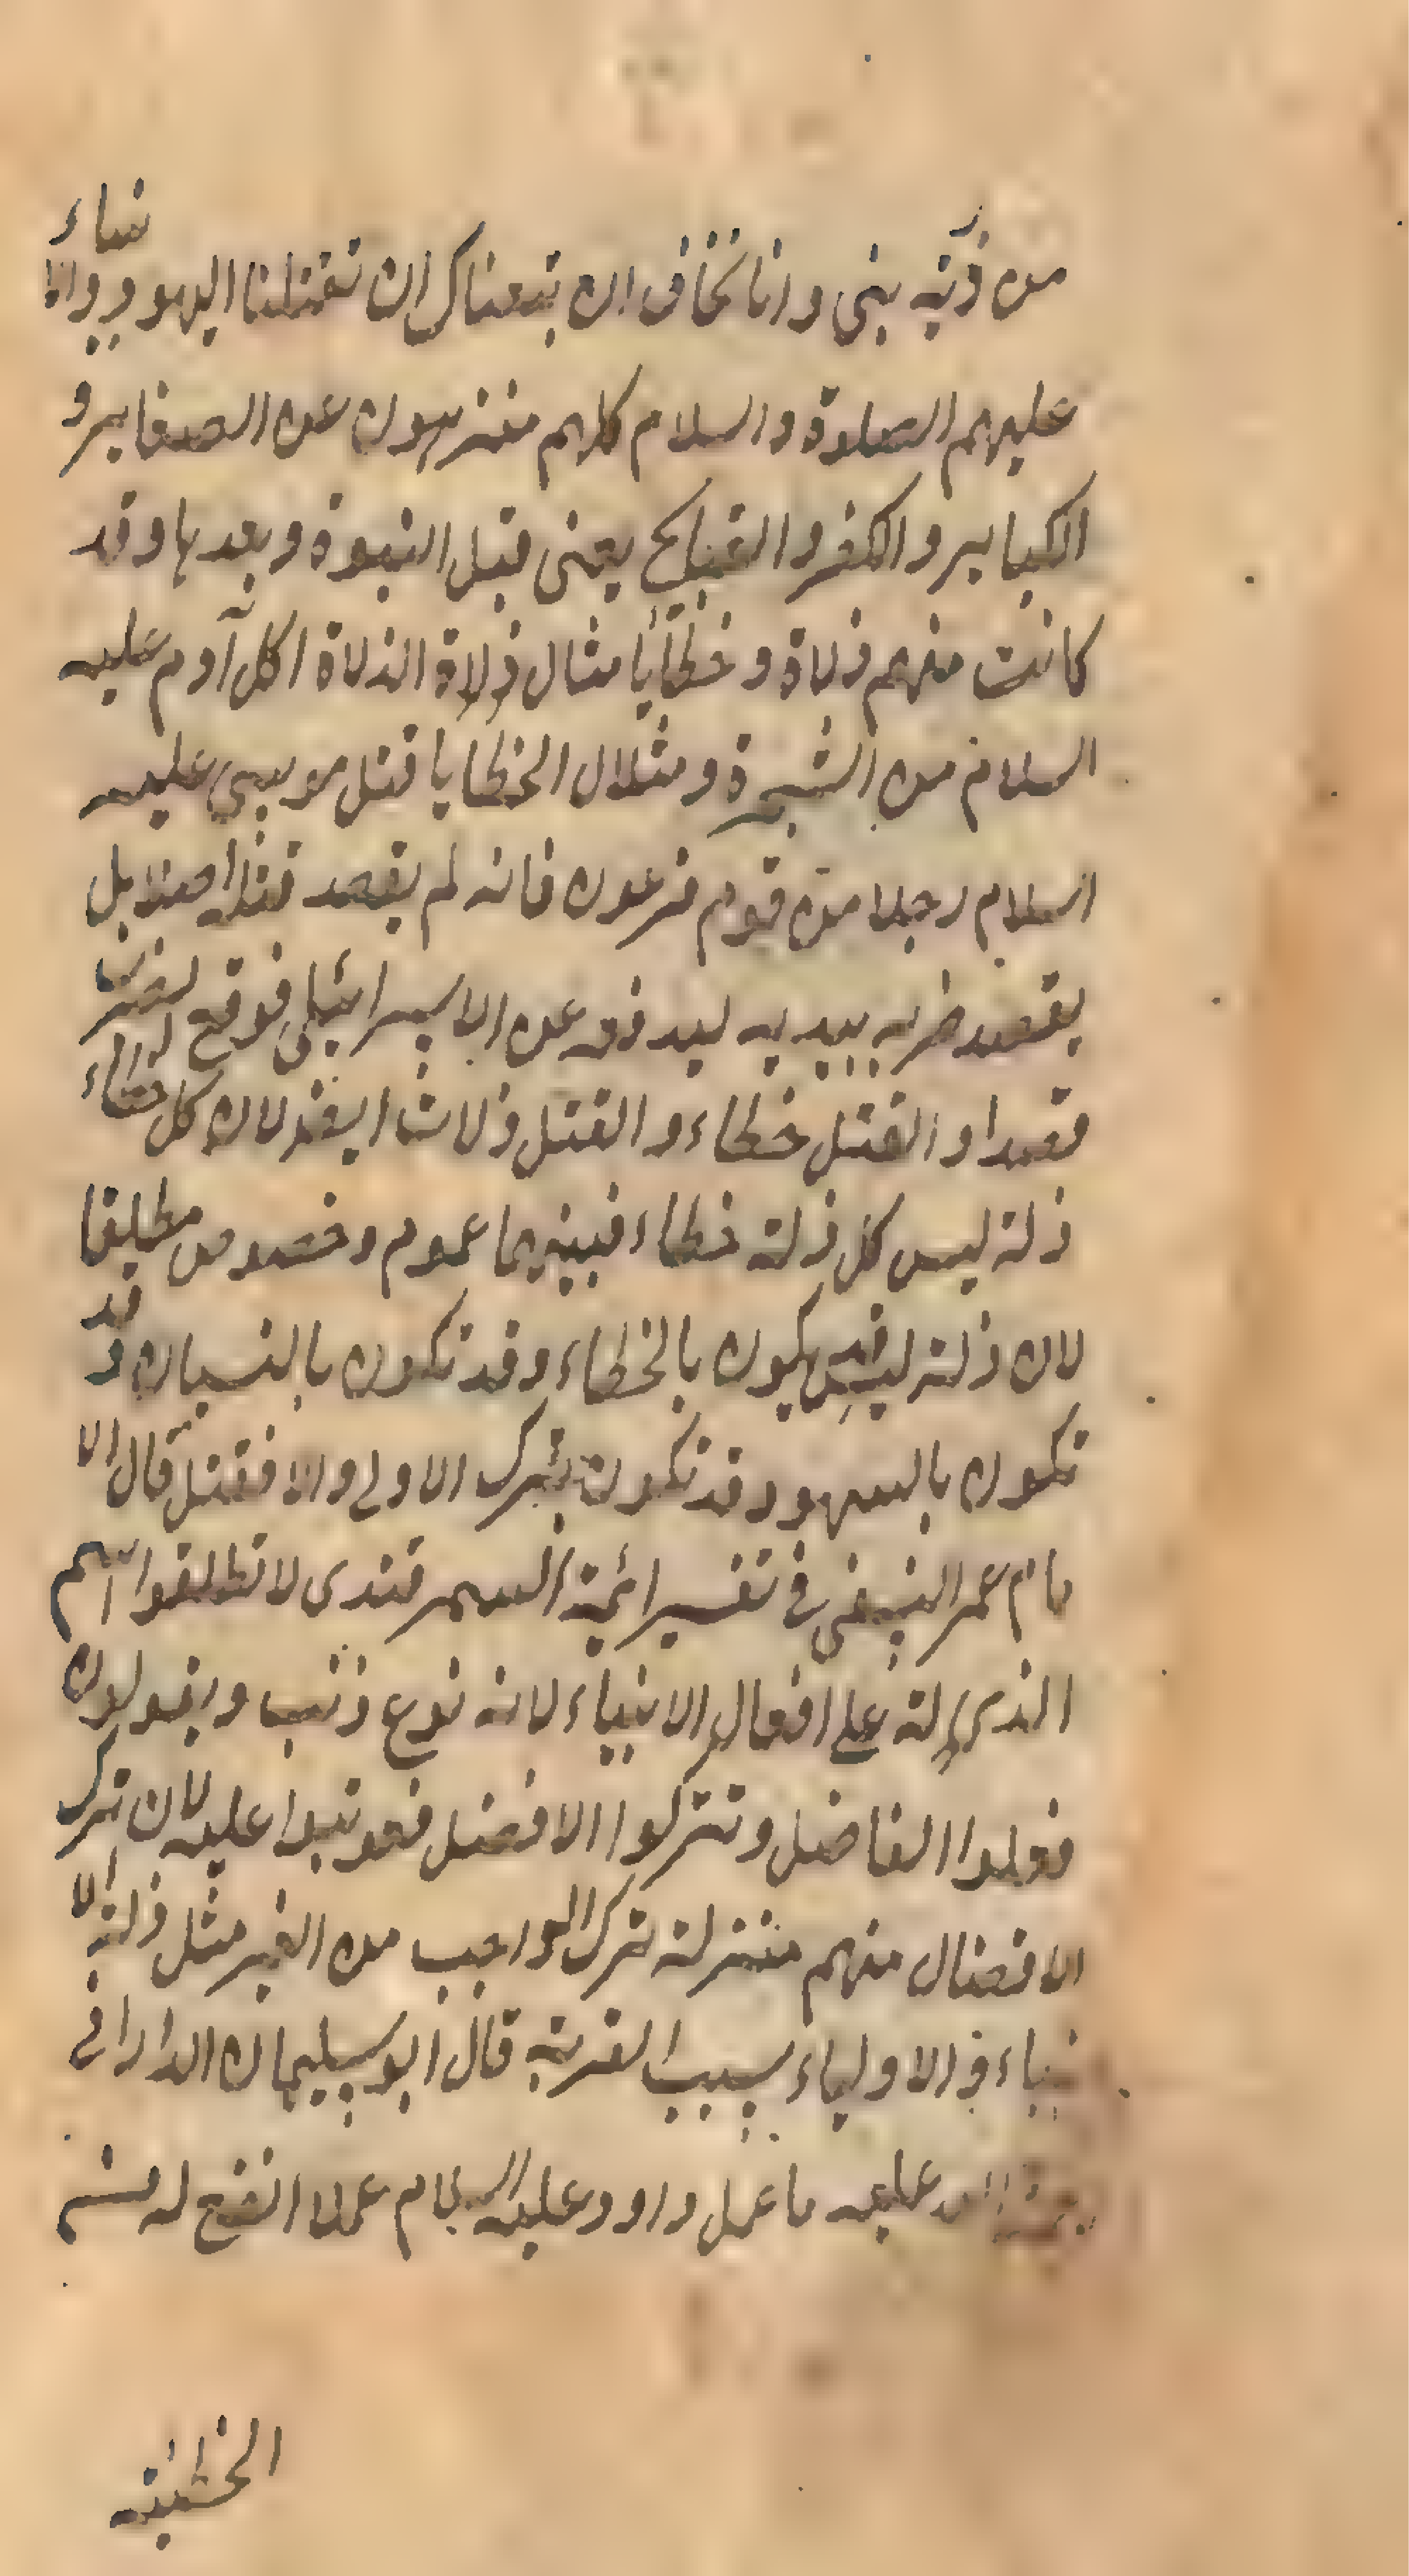 من ذريته نبي وانا نخاف ان تبعناك ان تقتلنا اليهود والانبياء
عليهم الصلوة والسلام كلهم منزهون عن الصغاير و
الكباير والكفر والقبايح يعني قبل النبوة وبعدها وقد
كانت منهم ذلاة وخطايا مثال ذلاة الذلاة اكل آدم عليه
السلام من الشجرة ومثلال الخطايا قتل موسى عليه
السلام رجلا من قوم فرعون فانه لم يقصد قتله اصلا بل
يقصد ضربه بيديه ليدفعه عن الاسرائيلي فوقع الضرب
قصدا والقتل خطاء والقتل ذلات ايضا لان كل خطاء
ذلة ليس كل ذلة خطاء فبينهما عموم وخصوص مطلقا
لان ذلة ليس يكون بالخطاء وقد تكون بالنسيان و قد
تكون بالسهو وقد تكون بترك الاولى والافضل قال الا
مام عمر النسفي في تفسير ائمة السمرقندى لا تطلقوا اسم
الذى لة على افعال الانبياء لانه نوع ذنب ويقولون
فعلوا الفاضل وتتركوا الافضل فعوتبوا عليه لان ترك
الافضال منهم منزلة ترك الواجب من الغير مثل ذلة الا
نبياء و الاولياء سبب القربة قال ابو سليمان الدارانى
رحمة الله عليه ما عمل داود عليه السلام عملا انفع له من
الخطيئة